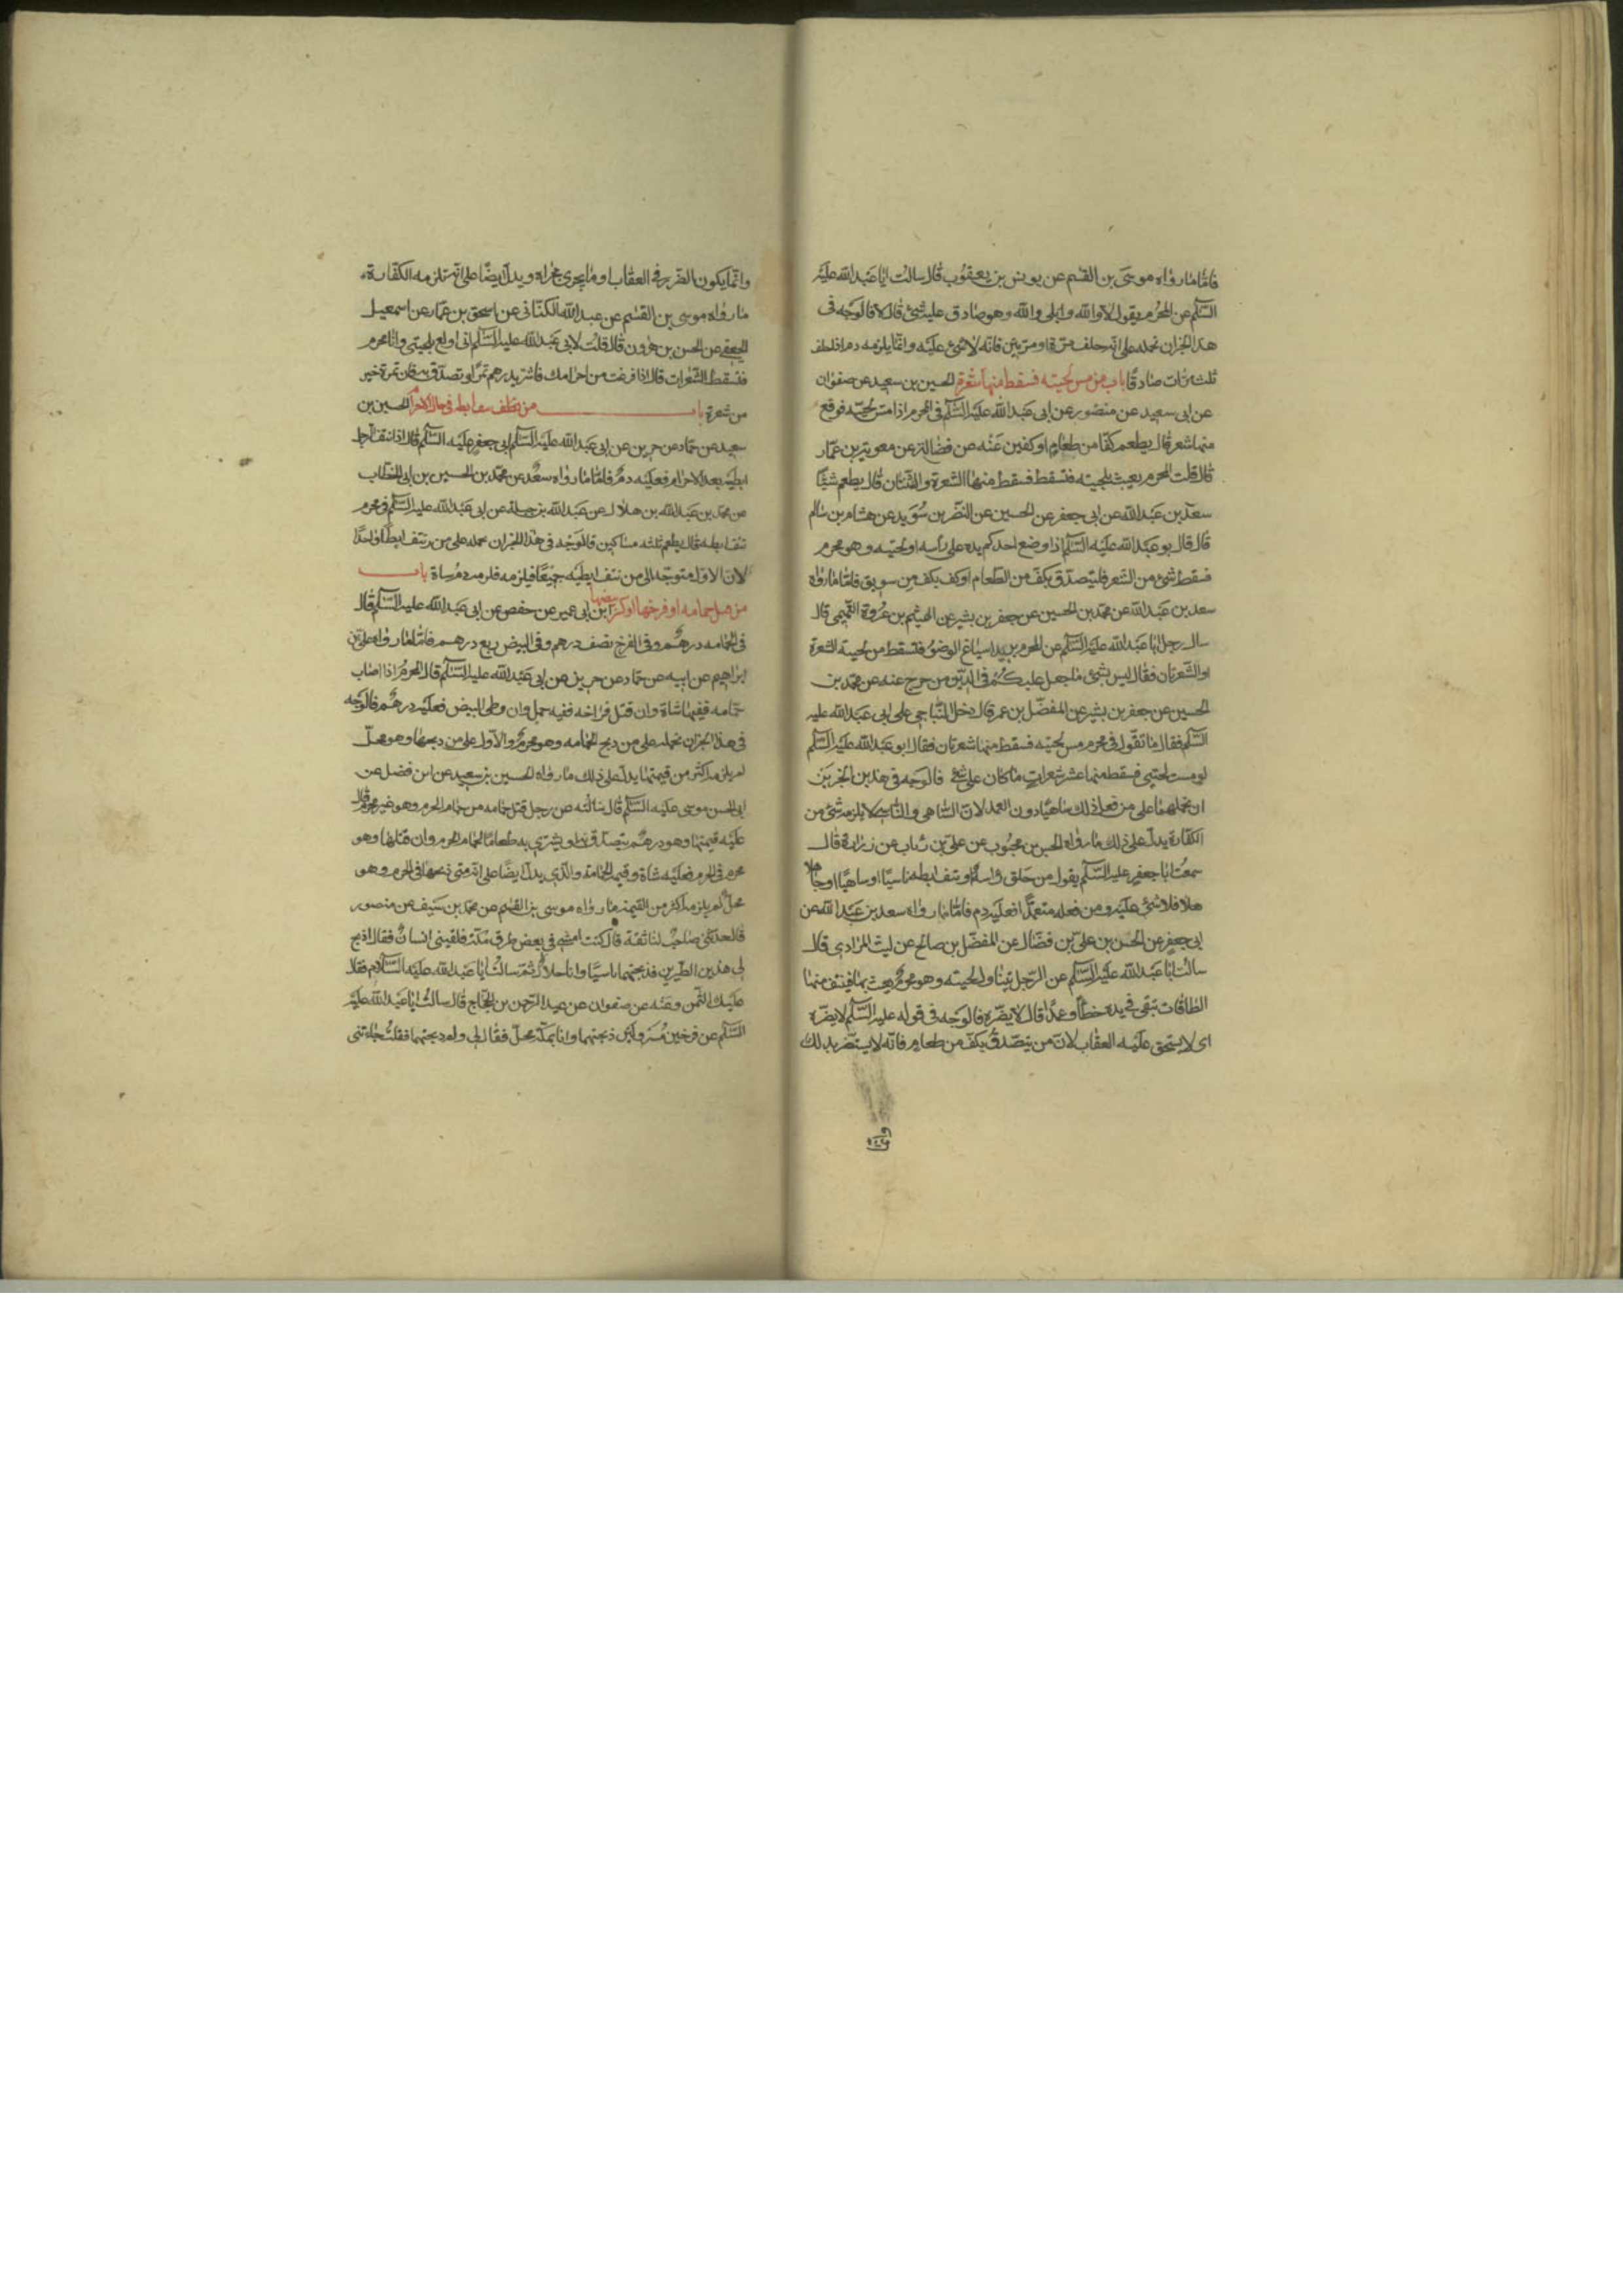 فامّا ما رواه موسى بن القسم عن يونس بن يعقوب قال سالت ابا عبد الله عليه
السّلم عن المحرم يقول لا والله وبلى والله وهو صادق عليه شئ قال لا فالوجه فى
هذا الخبر ان نحمله على انّه حلف مرّة او مرّتين فانّه لا شئ عليه وانّما يلزمه دم اذا حلف
ثلث مرّات صادقا باب من مسّ لحيته فسقط منها شعرة الحسين بن سعيد عن صفوان
عن ابى سعيد عن منصور عن ابى عبد الله عليه السّلم فى المحرم اذا مسّ لحيته فوقع
منها شعر قال يطعم كفّا من طعام او كفين عنه عن فضالة عن معوية بن عمّار
قال قلت المحرم يعبث بلحيته فتسقط فسقط منها الشعرة والثنتان قال يطعم شيئا
سعد بن عبد الله عن ابى جعفر عن الحسين عن النضر بن سويد عن هشام بن سالم
قال قال بو عبد الله عليه السّلم اذا وضع احدكم يده على راسه او لحيته وهو محرم
فسقط شئ من الشعر فليتصدّق بكفّ من الطعام او كف بكف من سويق فامّا ما رواه
سعد بن عبد الله عن محمّد بن الحسين عن جعفر بن بشير عن الهيثم بن عروة التميمى قال
سال رجل ابا عبد الله عليه السّلم عن المحرم يريد اسباغ الوضوء فتسقط من لحيته الشعرة
او الشّعرتان فقال ليس بشئ ما جعل عليكم فى الدّين من حرج عنه عن محمّد بن
الحسين عن جعفر بن بشير عن المفضّل بن عمر قال دخل النّباجى على ابى عبد الله عليه
السّلم فقال ما تقول فى محرم مسّ لحيته فسقط منها شعرتان فقال ابو عبد الله عليه السّلم
لو مسست لحيتى فسقط منها عشر شعرات ما كان علىّ شئ فالوجه فى هذين الخبرين
ان نحملهما على من فعل ذلك ساهيا دون العمد لانّ السّاهى والنّاسى لا يلزمه شئ من
الكفّارة يدلّ على ذلك ما رواه الحسن بن محبوب عن على بن رئاب عن زرارة قال
سمعت ابا جعفر عليه السّلم يقول من حلق راسه او نتف ابطه ناسيا او ساهيا او جا
هلا فلا شئ عليه ومن فعله متعمدا فعليه دم فامّا ما رواه سعد بن عبد الله عن
ابى جعفر عن الحسن بن على بن فضّال عن المفضّل بن صالح عن ليث المرادى قال
سالت ابا عبد الله عليه السّلم عن الرّجل يتناول لحيته وهو محرم يعبث بها فينتف منها
الطاقات تبقى فى يده خطا وعمدا قال لا يضرّه فالوجه فى قوله عليه السّلم لا يضرّه
اى لا يستحق عليه العقاب لانّ من تصّدق بكفّ من طعام فانّه لا يستضر بذلك
وانّما يكون الضّرر فى العقاب او ما يجرى مجراه ويدلّ ايضا على انّه تلزمه الكفّارة
ما رواه موسى بن القسم عن عبد الله الكنانى عن اسحق بن عمّار عن اسمعيل
الجعفى عن الحسن بن هرون قال قلت لابى عبد الله عليه السّلم انى اولع بلحيتى وانا محرم
فتسقط الشّعرات قال اذا فرغت من احرامك فاشتر بدرهم تمرا وتصدّق به فان تمرة خير
من شعرة باب من نتف ابطه فى حال الاحرام الحسين بن
سعيد عن حمّاد عن حريز عن ابى عبد الله عليه السّلم ابى جعفر عليه السّلم قال اذا نتف الرّجل
ابطيه بعد الاحرام فعليه دم فامّا ما رواه سعد عن محمّد بن الحسين بن ابى الخطّاب
عن محمّد بن عبد الله بن هلال عن عبد الله بن جبلة عن ابى عبد الله عليه السّلم فى محرم
نتف ابطه قال يطعم ثلثه مساكين فالوجه فى هذا الخبر ان نحمله على من نتف ابطا واحدا
لانّ الاوّل متوجّه الى من نتف ابطيه جميعا فيلزمه دم شاة باب
من قتل حمامه او فرخها او كسر بيضها ابن ابى عمير عن حفص عن ابى عبد الله عليه السّلم قال
فى الحمامه درهم وفى الفرخ نصف درهم وفى البيض ربع درهم فامّا ما رواه على بن
ابراهيم عن ابيه عن حمّاد عن حريز عن ابى عبد الله عليه السّلم قال المحرم اذا اصاب
حمامه ففيها شاة وان قتل فراخه ففيه حمل وان وطى البيض فعليه درهم فالوجه
فى هذا الخبر ان نحمله على من ذبح الحمامه وهو محرم والاوّل على من ذبحها وهو محلّ
لم يلزمه اكثر من قيمتها يدلّ على ذلك ما رواه الحسين بن سعيد عن ابن فضل عن
ابى الحسن موسى عليه السّلم قال سالته عن رجل قتل حمامه من حمام الحرم وهو غير محرم قال
عليه قيمتها وهو درهم يتصدّق به او يشترى به طعاما لحمام الحرم وان قتلها وهو
محرم فى الحرم فعليه شاة وقيمه الحمامة والذى يدلّ ايضا على انّه متى ذبحها فى الحرم وهو
محلّ لم يلزمه اكثر من القيمة ما رواه موسى بن القسم عن محمد بن سيف عن منصور
قال حدّثنى صاحب لنا ثقة قال كنت امشى فى بعض طرق مكّة فلقينى انسان فقال اذبح
لى هذين الطّيرين فذبحتهما ناسيّا وانا حلال ثمّ سالت ابا عبد الله عليه السّلام فقال
عليك الثّمن وعنه عن صفوان عن عبد الرّحمن بن الحجّاج قال سالت ابا عبد الله عليه
السّلم عن فرخين مسرولين ذبحتهما وانا بمكّة محلّ فقال لى ولم ذبحتهما فقلت جاءتنى